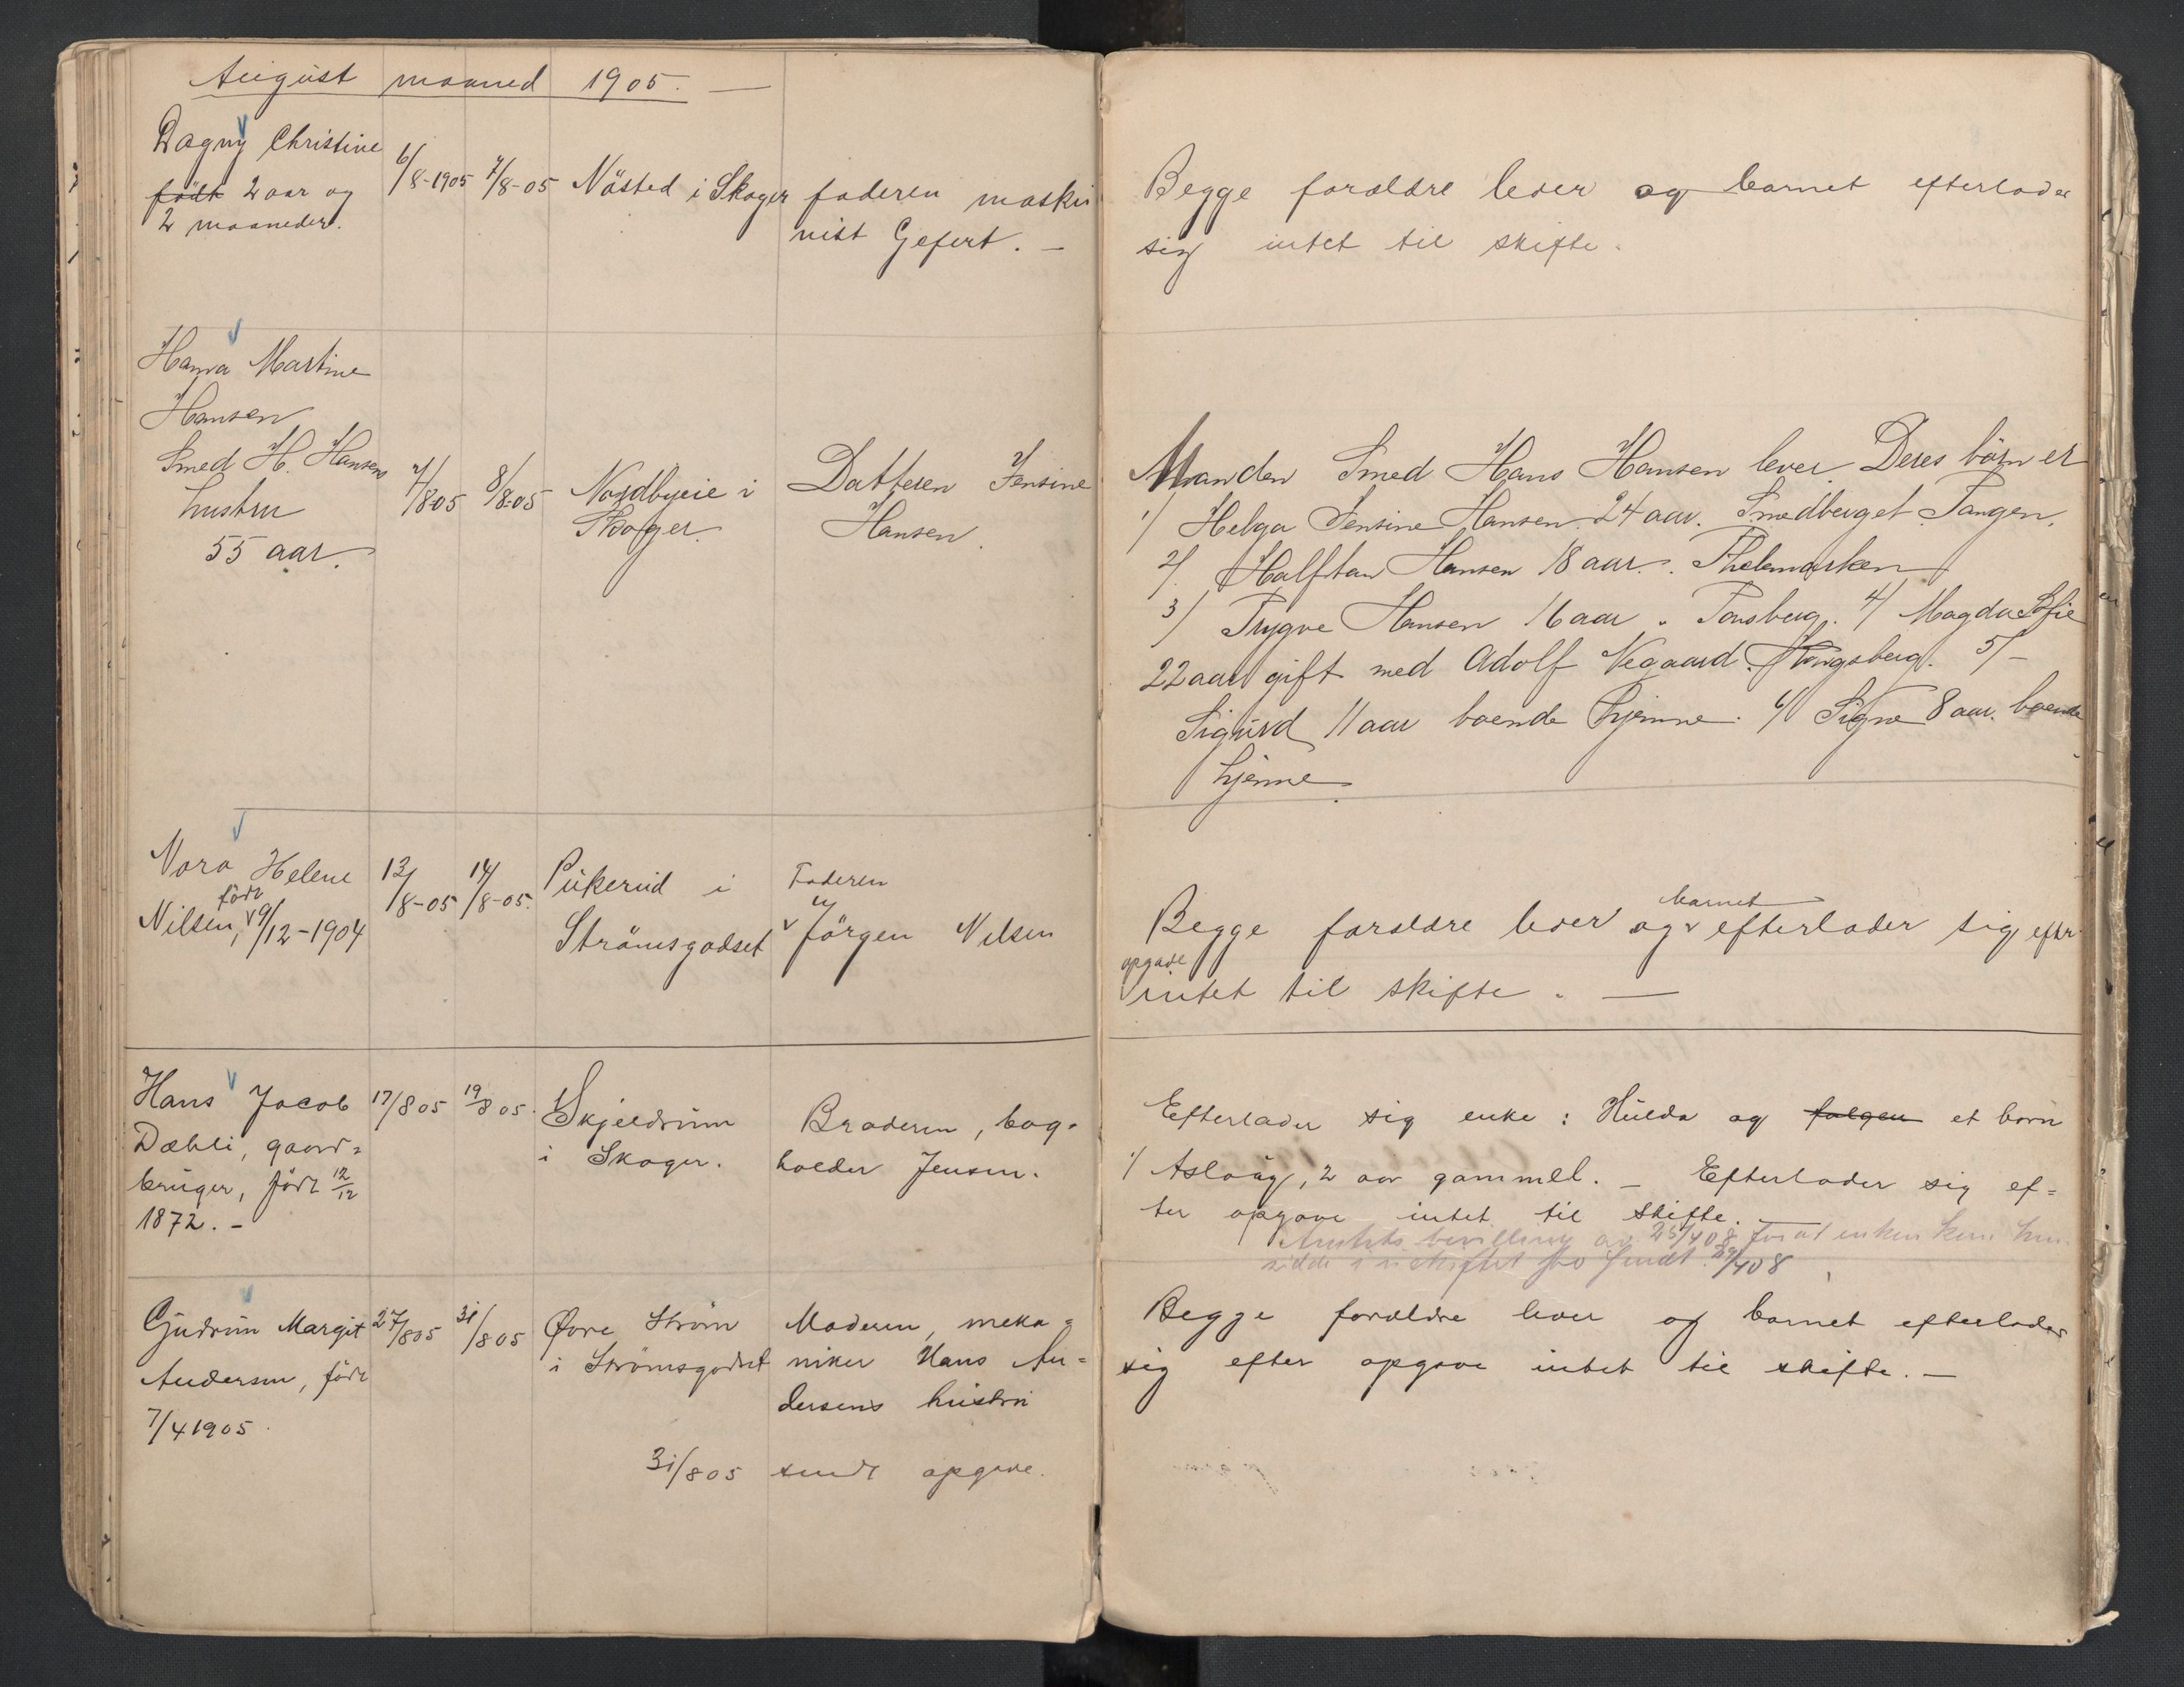 August maaned 1905. —
Dagny Christine
födt 2 aar og
2 maaneder.
6/8-1905
7/8-05
Nösted i Skoger
faderen maski
nist Gefert. —
Begge forældre lever og barnet efterlader
sig intet til skifte.
Hanna Martine
Hansen
Smed H. Hansens
hustru
55 aar.
7/8-05
8/8-05
Nordbyeie i
Skoger.
Datteren Jensine
Hansen.
Manden Smed Hans Hansen lever. Deres börn er
1/ Helga Jensine Hansen 24 aar. Smedberget Tangen.
2/ Halfdan Hansen 18 aar. Thelemarken
3/ Trygve Hansen 16 aar. Tønsberg. 4/ Magda Sofie
22 aar gift med Adolf Vegaard. Kongsberg. 5/ –
Sigurd 11 aar boende hjemme. 6/ Signe 8 aar. boende
hjemme.
Nora Helene
födt
Nilsen, 19/12-1904
13/8-05
14/8-05.
Pukerud i
Strömsgodset
Faderen
Jörgen Nilsen
barnet
Begge forældre lever og efterlader sig efter
opgave
intet til skifte. —
Hans Jacob
Dæhli, gaard=
bruger, födt 12/12
1872. –
17/8 05
19/8 05.
Skjeldrum
i Skoger.
Broderen, bog-
holder Jensen.
Efterlader sig enke: Hulda og følgen et barn
1/ Aslaug, 2 aar gammel. – Efterlader sig ef=
ter opgave intet til skifte. —
bevilling av 25/4 08 for at enken kan hen
sidde i uskiftet bo sendt 29/4 08
Gudrun Margit
Andersen, födt
7/4 1905.
27/8 05
31/8 05
Øvre Ström
i Strömsgodset
Moderen, meka=
niker Hans An=
dersens hustru
31/8 05 sendt opgave.
Begge forældre lever og barnet efterlader
sig efter opgave intet til skifte. –